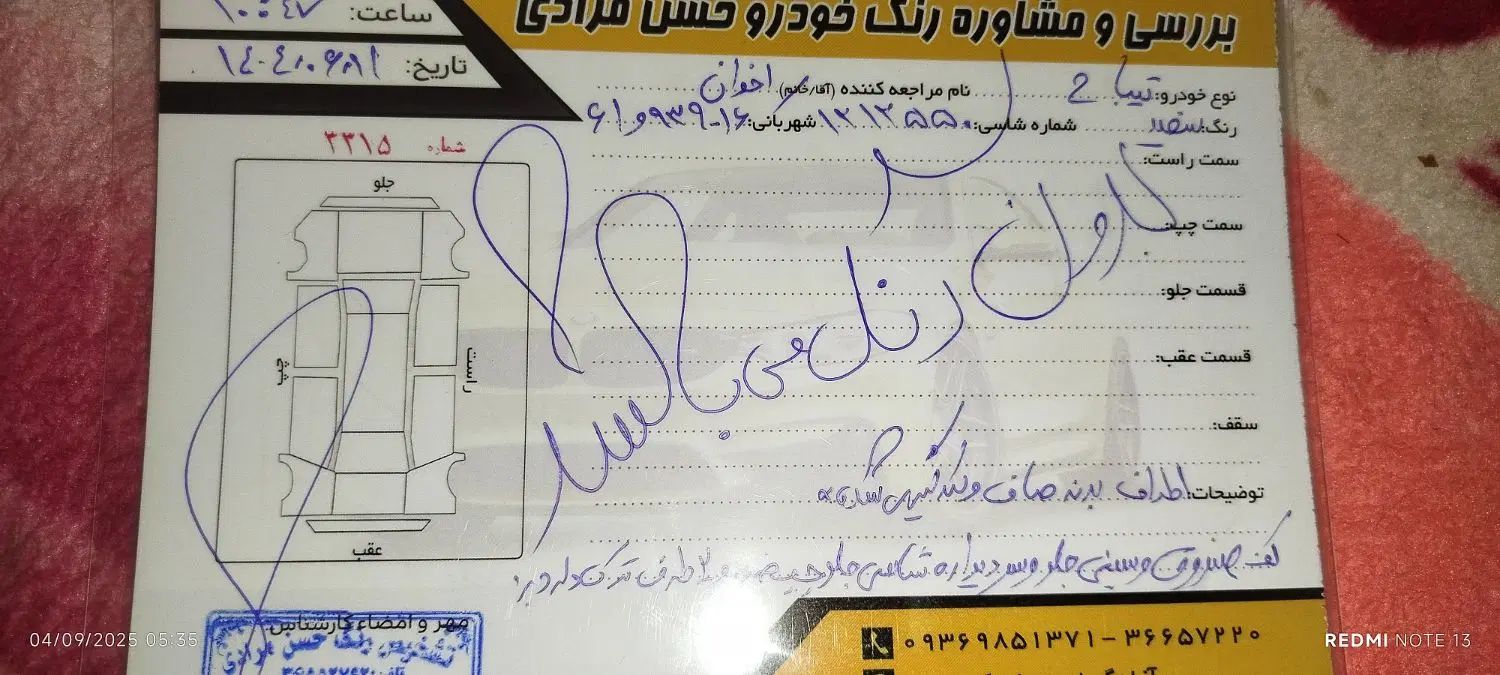 بررسی و مشاوره رنگ خودرو حسن مرادی
ساعت: ۱۰:۴۷
تاریخ:
نوع خودرو: تیبا 2
نام مراجعه کننده (آقا/خانم): اخوان
رنگ: سفید
شماره شاسی: ۱۲۱۲۵۵۰
شهربانی:
شماره ۳۳۱۵
سمت راست:
سمت چپ:
قسمت جلو:
قسمت عقب:
سقف:
بدون رنگ می باشد
توضیحات: اطراف بدنه صاف و لکه گیری شده
کف صندوق و سینی جلو و سر دیواره شاسی جلو طرف ترک دارد
جلو
راست
چپ
عقب
مهر و امضاء کارشناس
تشخیص رنگ حسن مرادی
۰۹۳۶۹۸۵۱۳۷۱ - ۳۶۶۵۷۲۲۰
04/09/2025 05:35
REDMI NOTE 13